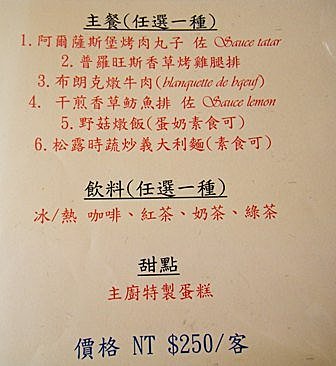 主餐(任選一種)
1.阿爾薩斯堡烤肉丸子 佐 Sauce tatar
2.普羅旺斯香草烤雞腿排
3.布朗克燉牛肉(blanquette de bœuf)
4. 干煎香草魴魚排 佐 Sauce lemon
5.野菇燉飯(蛋奶素食可)
6.松露時蔬炒義大利麵(素食可)
飲料(任選一種)
冰/熱 咖啡、紅茶、奶茶、綠茶
甜點
主廚特製蛋糕
價格 NT $250/客